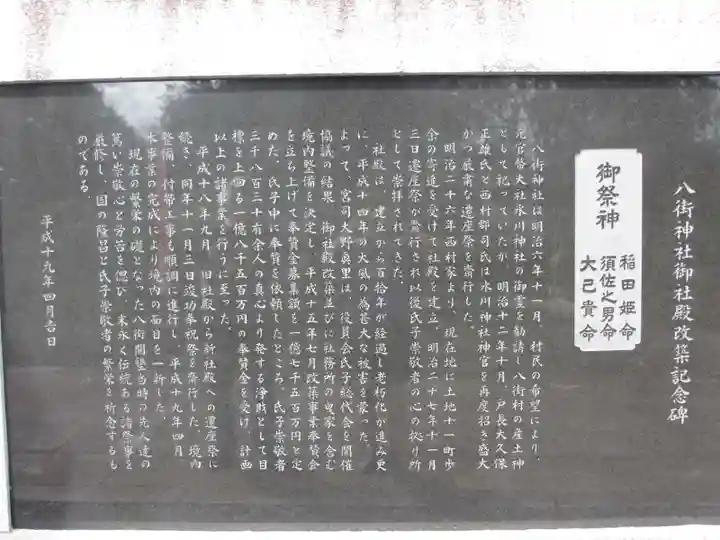 八街神社御社殿改築記念碑
御祭神
稲田姫命
須佐之男命
大己貴命
八街神社は明治六年十一月、村民の希望により、
元官幣大社氷川神社の御霊を勧請し八街村の産土神
として祀っていたが、明治十二年十月、戸長大久保
正雄氏と西村郡司氏は氷川神社神官を再度招き盛大
かつ厳粛な遷座祭を斎行した。
明治二十六年西村家より、現在地に土地十一町歩
余の寄進を受けて社殿を建立、明治二十七年十一月
三日遷座祭が斎行され以後氏子崇敬者の心の拠り所
として崇拝されてきた。
社殿は、建立から百拾年が経過し老朽化が進み更
に、平成十四年の大風の為甚大な被害を蒙った。
よって、宮司大野眞里は、役員会氏子総代会を開催
協議の結果、御社殿改築並びに社務所の曳家を含む
境内整備を決定し、平成十五年七月改築事業奉賛会
を立ち上げて奉賛資金募集額を一億七千五百万円と定
めた。氏子中に奉賛を依頼したところ、氏子崇敬者
三千八百二十有余人の真心より発する浄財として目
標を上回る一億八千五百万円の奉賛金を受け、計画
以上の諸事業を行うに至った。
平成十八年九月、旧社殿から新社殿への遷座祭に
続き、同年十一月三日竣功奉祝祭を斎行した。境内
整備、付帯工事も順調に進行し、平成十九年四月
本事業の完成により境内の面目を一新した。
現在の繁栄の礎となった八街開墾当時の先人達の
篤い崇敬心と労苦を偲び、末永く伝統ある諸祭事を
厳修し、国の隆昌と氏子崇敬者の繁栄を祈念するも
のである。
平成十九年四月吉日